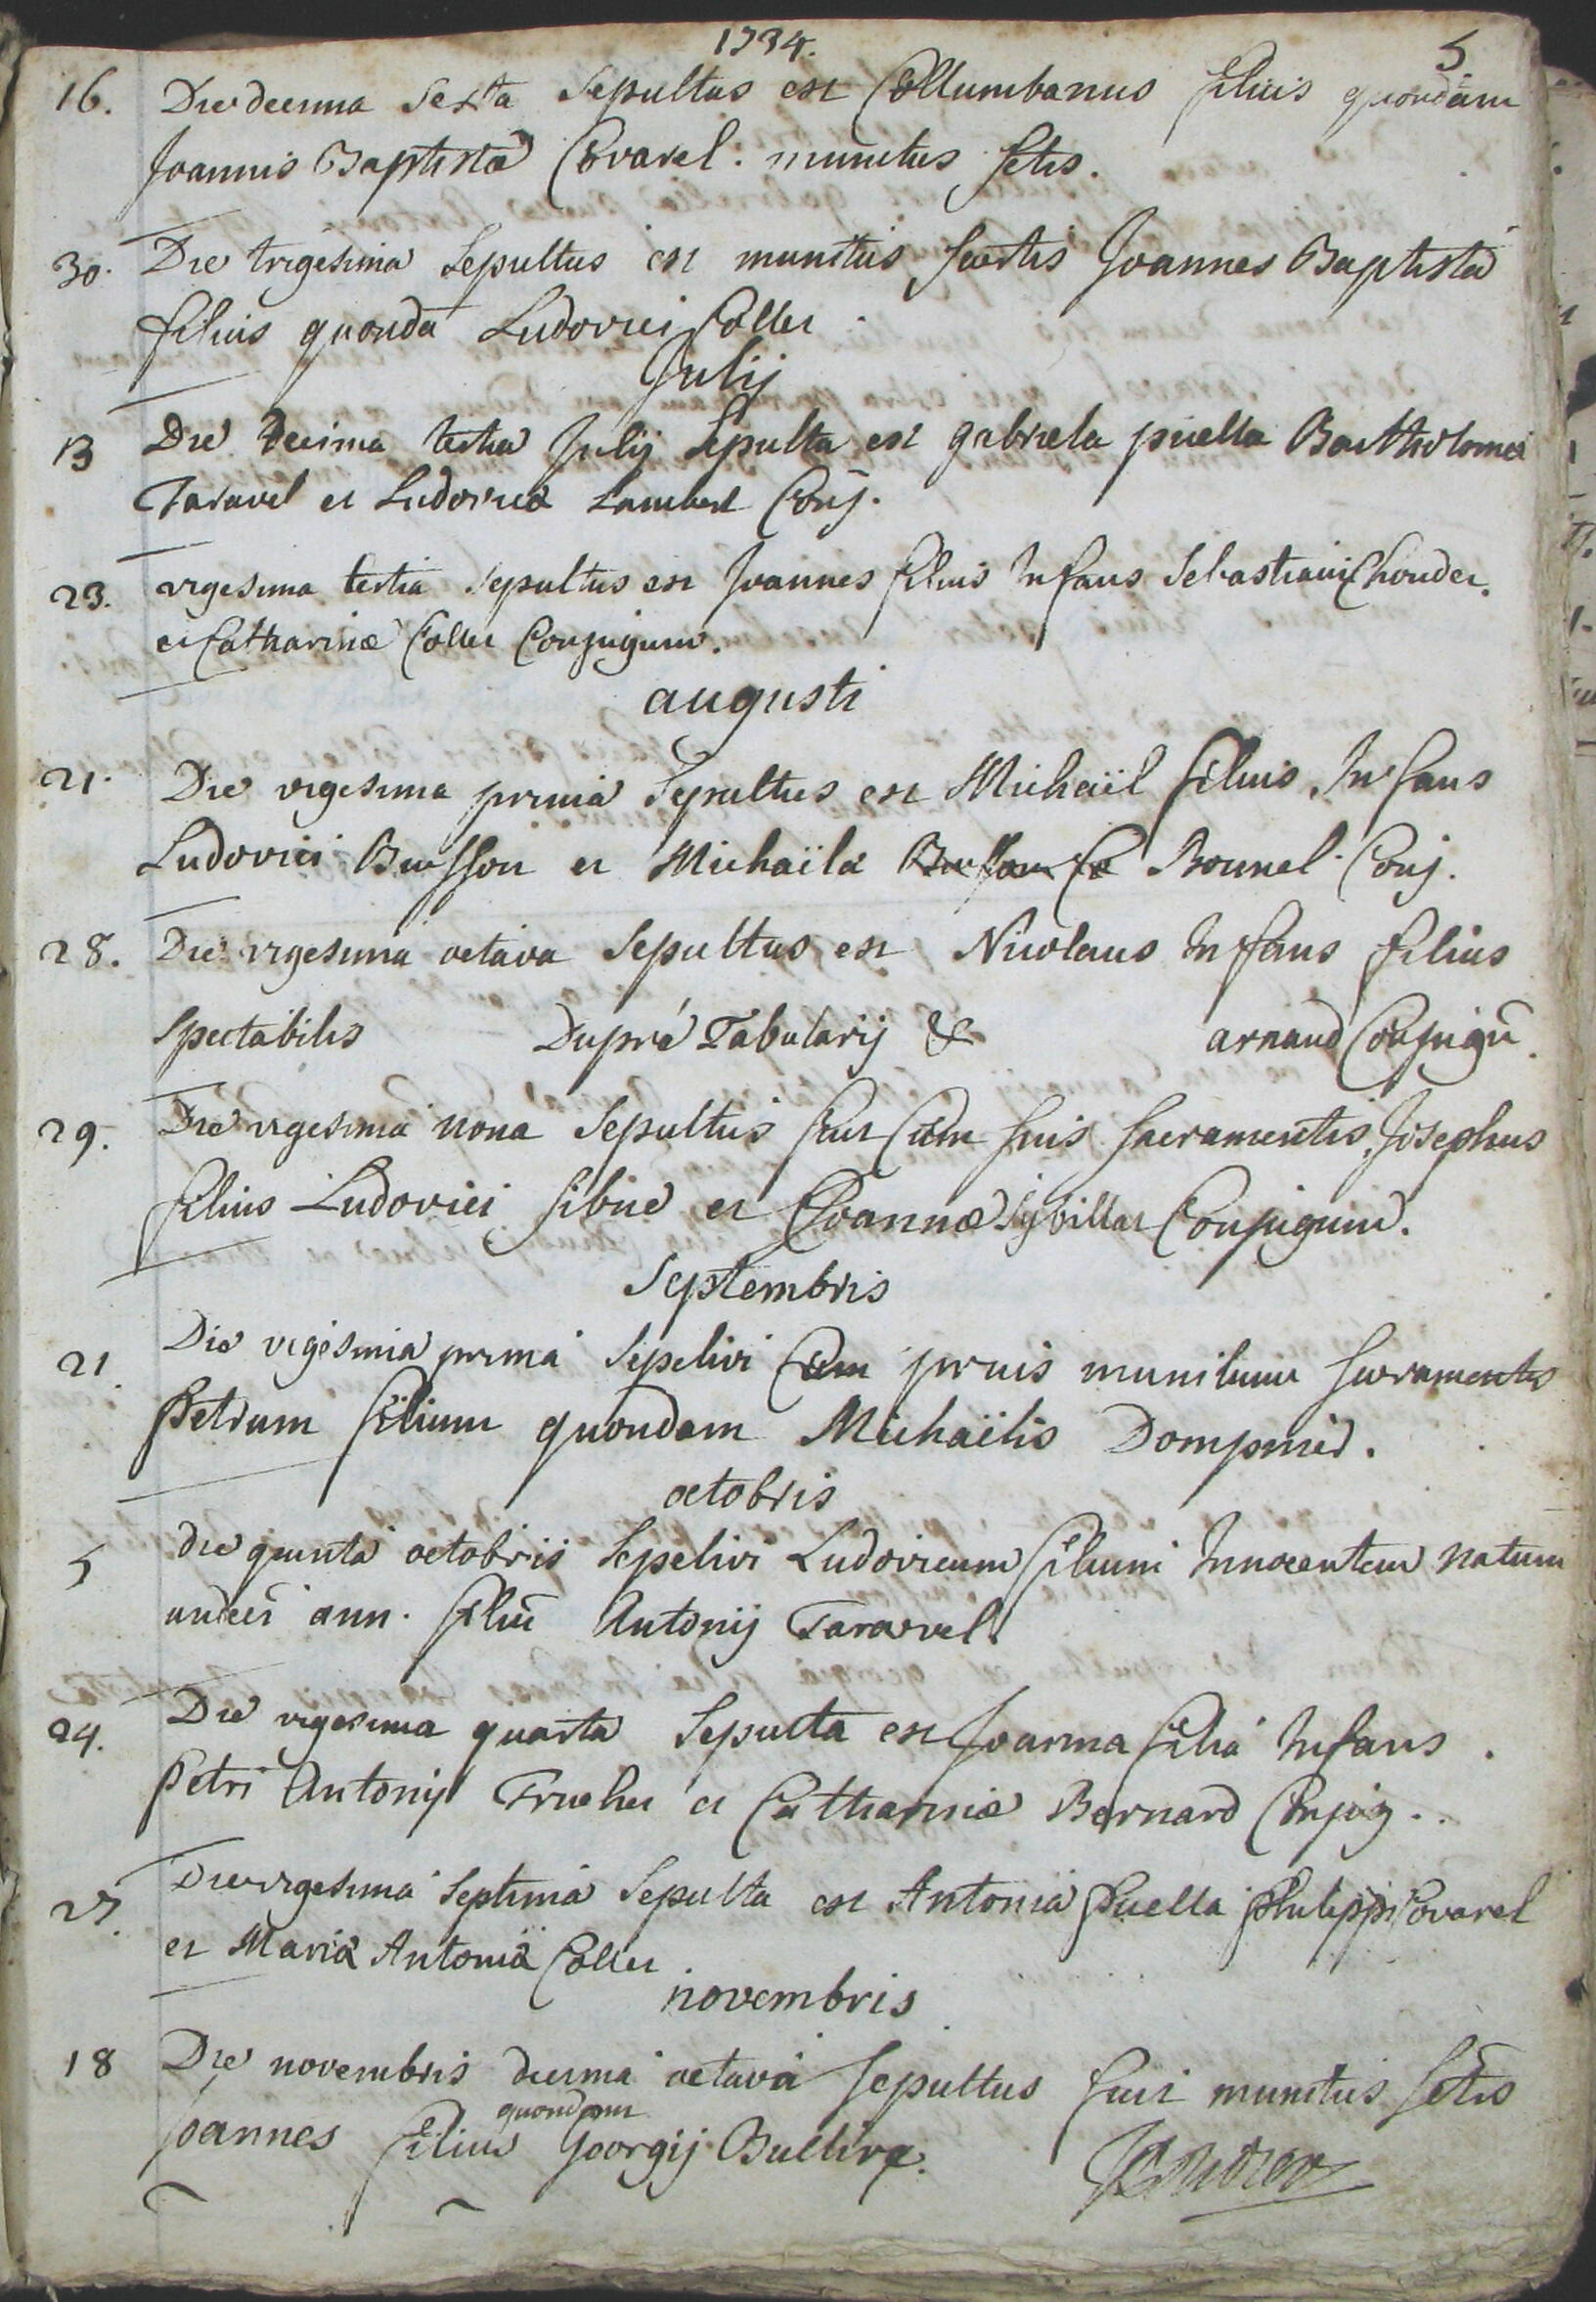 1734. 5
16. Die decima Sexta Sepultus est Collumbanus filius quondam
Joannis Baptistæ Covarel. munitus Sctis.
30. Die trigesima Sepultus est munitus Sactis Joannes Baptista
filius quondã Ludovici Collet.
Julij
13 Die Decima tertia Julij Sepulta est gabriela puella Bartholomei
Taravel et Ludovicæ Lambert Conj.
23. vigesima tertia Sepultus est Joannes filius Infans Sebastiani Choudet.
et Catharinæ Collet Conjugum.
augusti
21. Die vigesima prima Sepultus est Michaïl filius Infans
Ludovici Buisson et Michaïlæ Bonnel Conj.
28. Die vigesima octava Sepultus est Nicolaus Infans filius
Spectabilis Dupré Tabularij & arnaud Conjugũ.
29. Die vigesima nona Sepultus fuit Cum suis Sacramentis, Josephus
filius Ludovici sibué et Joannæ Sybillat Conjugum.
Septembris
21. Die vigesima prima Sepelivi Cum prius munitum Sacramentis
Petrum filium quondam Michaïlis Dompnié.
octobris
5 die quinta octobris Sepelivi Ludovicum filium Innocentem natum
undeci ann. filiũ Antonij Taravel.
24. Die vigesima quarta Sepulta est Joanna filia Infans.
Petri Antonij Truchet et Catharinæ Bernard Conjug..
27. Die vigesima Septima Sepulta est Antonia Puella Philippi Covarel
et Mariæ Antoniæ Collet.
novembris
18 Die novembris decima octava Sepultus fuit munitus Sctis
Joannes filius quondam Georgij Bulliez.